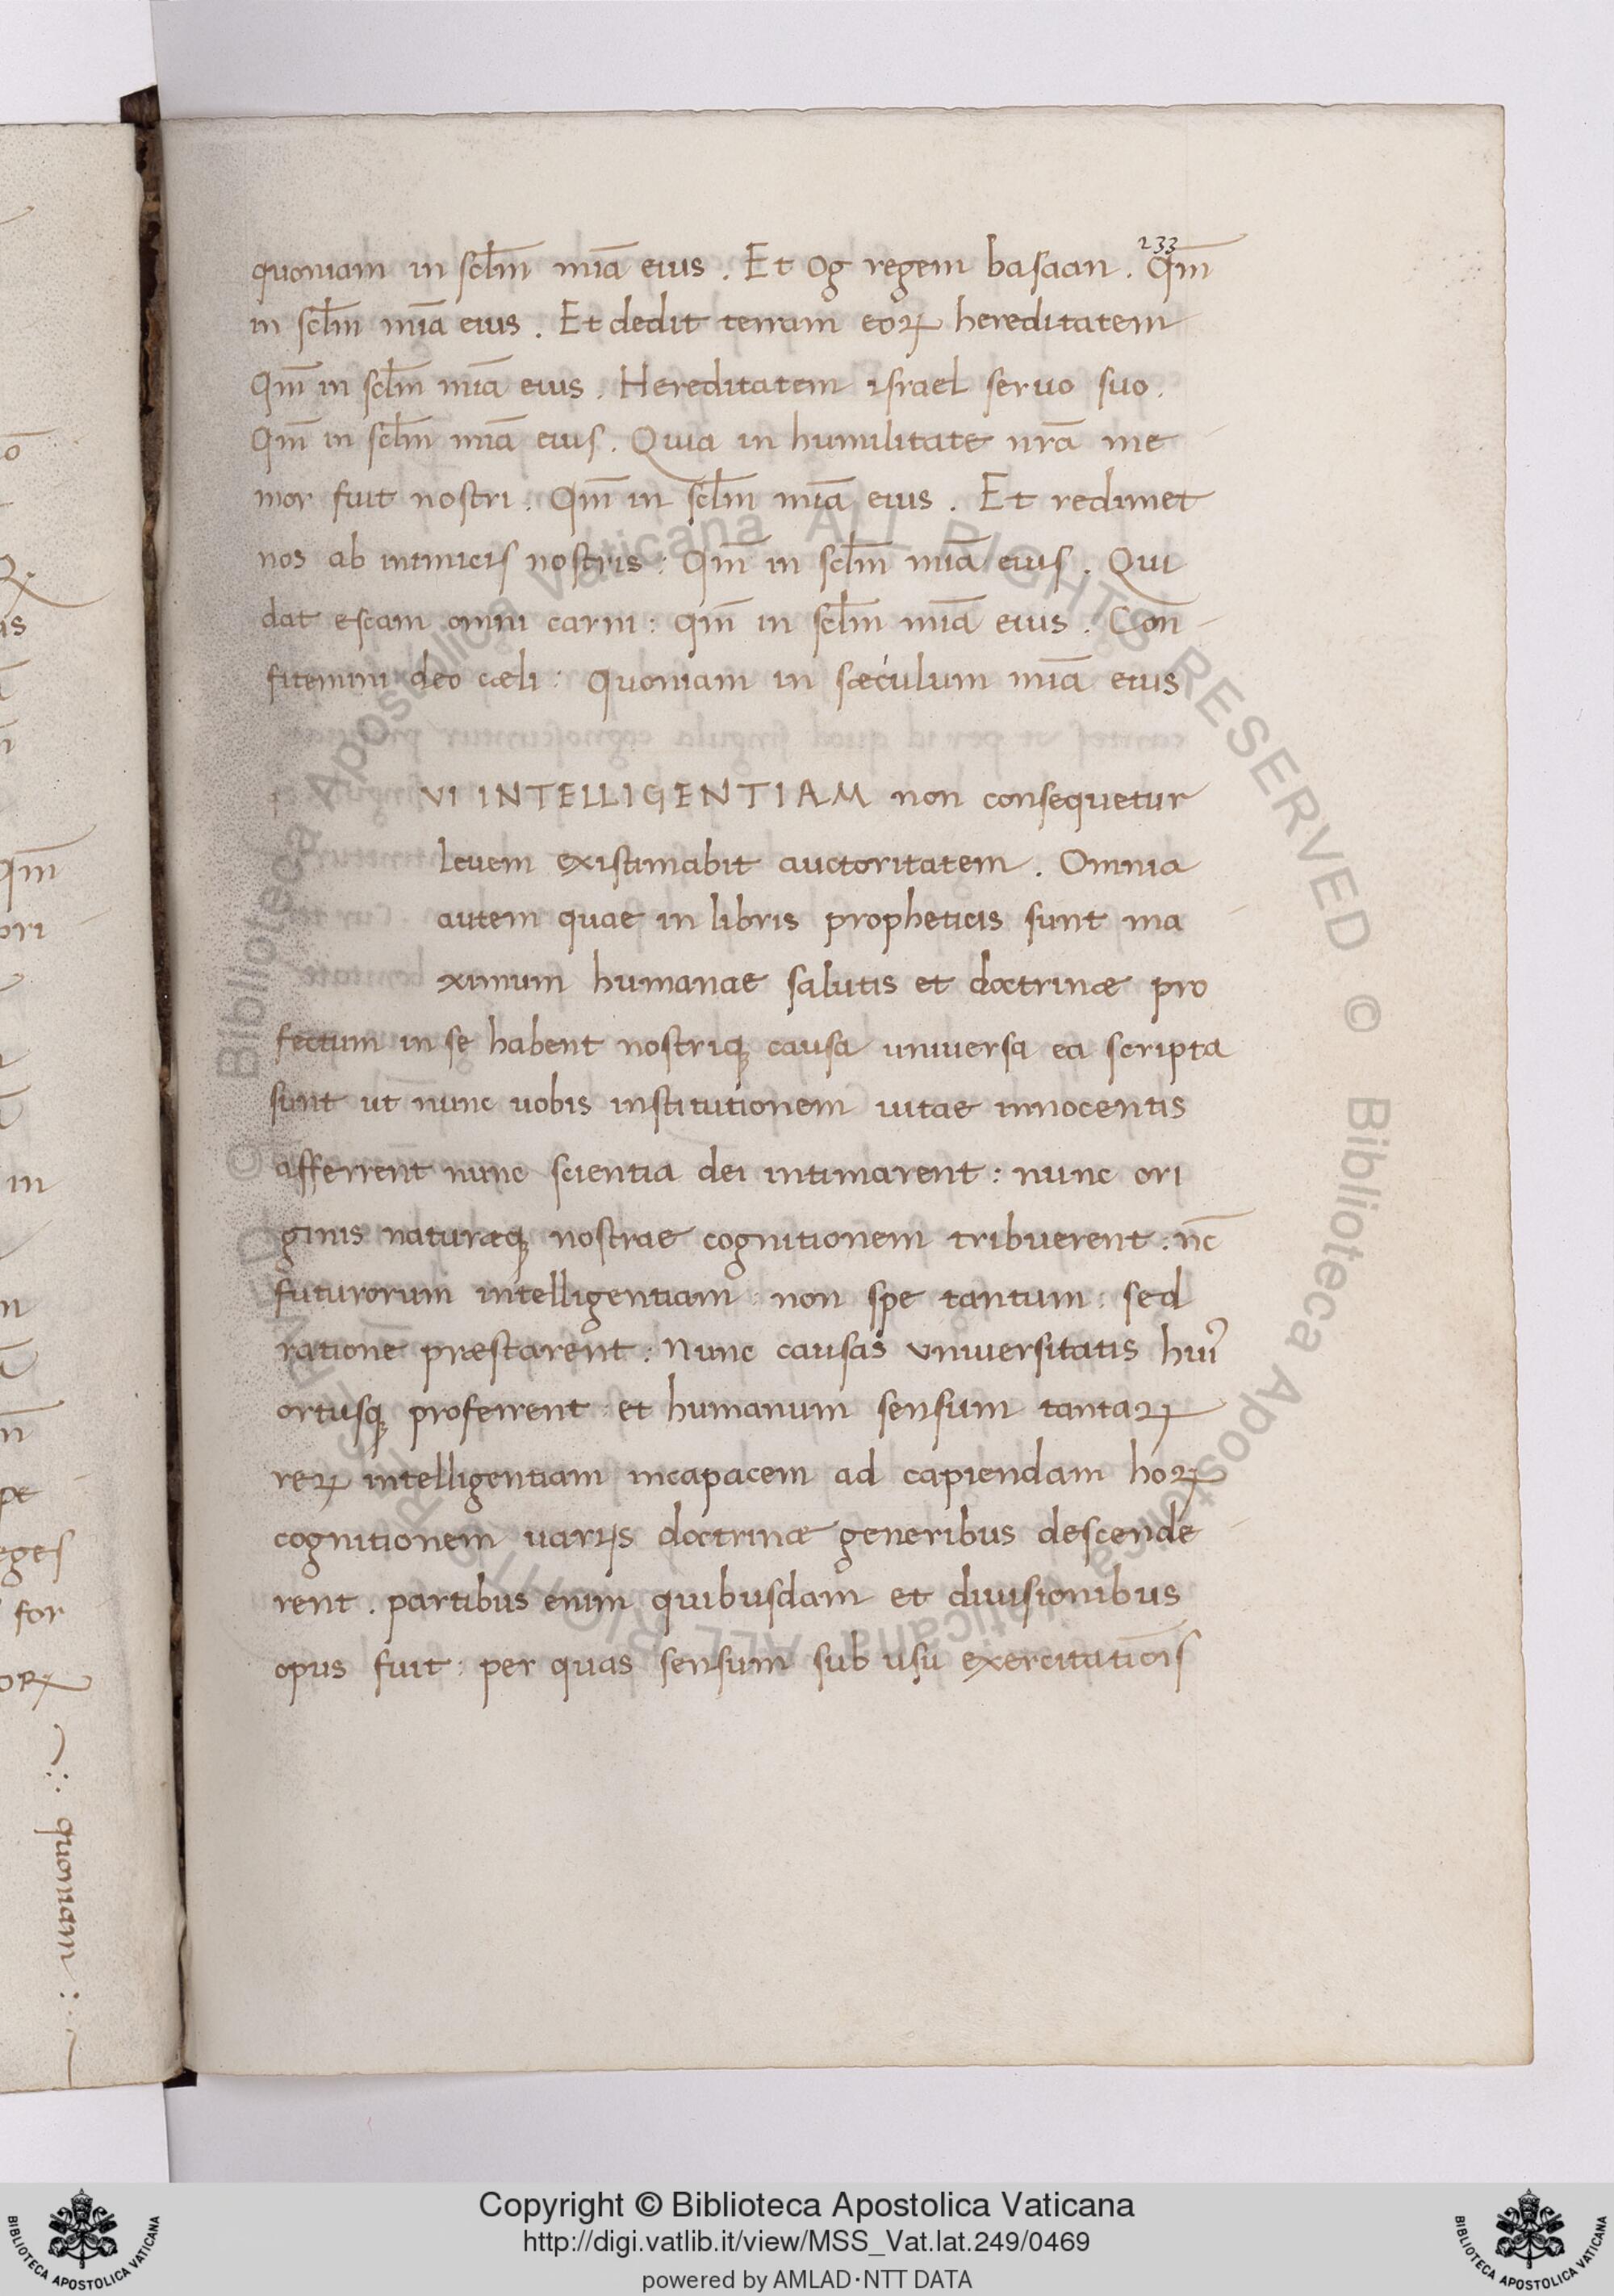 233
quoniam in sc̅l̅m mi̅a̅ eius . Et Og regem basaan . Qm̅
in sc̅l̅m mi̅a̅ eius . Et dedit terram eoꝝ hereditatem
Qm̅ in sc̅l̅m mi̅a̅ eius . Hereditatem israel seruo suo .
Qm̅ in sc̅l̅m mi̅a̅ eius . Quia in humilitate nr̅a̅ me
mor fuit nostri . Qm̅ in sc̅l̅m mi̅a̅ eius . Et redimet
nos ab inimicis nostris : Qm̅ in sc̅l̅m mi̅a̅ eius . Qui
dat escam omni carni : qm̅ in sc̅l̅m mi̅a̅ eius . Con
fitemini deo cæli : Quoniam in sæculum mi̅a̅ eius
VI INTELLIGENTIAM non consequetur
leuem existimabit auctoritatem . Omnia
autem quae in libris propheticis sunt ma
ximum humanae salutis et doctrinæ pro
fectum in se habent nostriqꝫ causa uniuersa ea scripta
sunt ut nunc uobis institutionem uitae innocentis
afferrent nunc scientia dei intimarent : nunc ori
ginis naturæqꝫ nostrae cognitionem tribuerent : nc̅
futurorum intelligentiam : non spe tantum : sed
ratione præstarent : Nunc causas vniuersitatis huiꝰ
ortusqꝫ proferrent : et humanum sensum tantaꝝ
reꝝ intelligentiam incapacem ad capiendam hoꝝ
cognitionem uarijs doctrinæ generibus descende
rent . partibus enim quibusdam et diuisionibus
opus fuit : per quas sensum sub usu exercitatio̅is
quoniam :
Copyright © Biblioteca Apostolica Vaticana
http://digi.vatlib.it/view/MSS_Vat.lat.249/0469
powered by AMLAD·NTT DATA
BIBLIOTECA APOSTOLICA VATICANA
BIBLIOTECA APOSTOLICA VATICANA